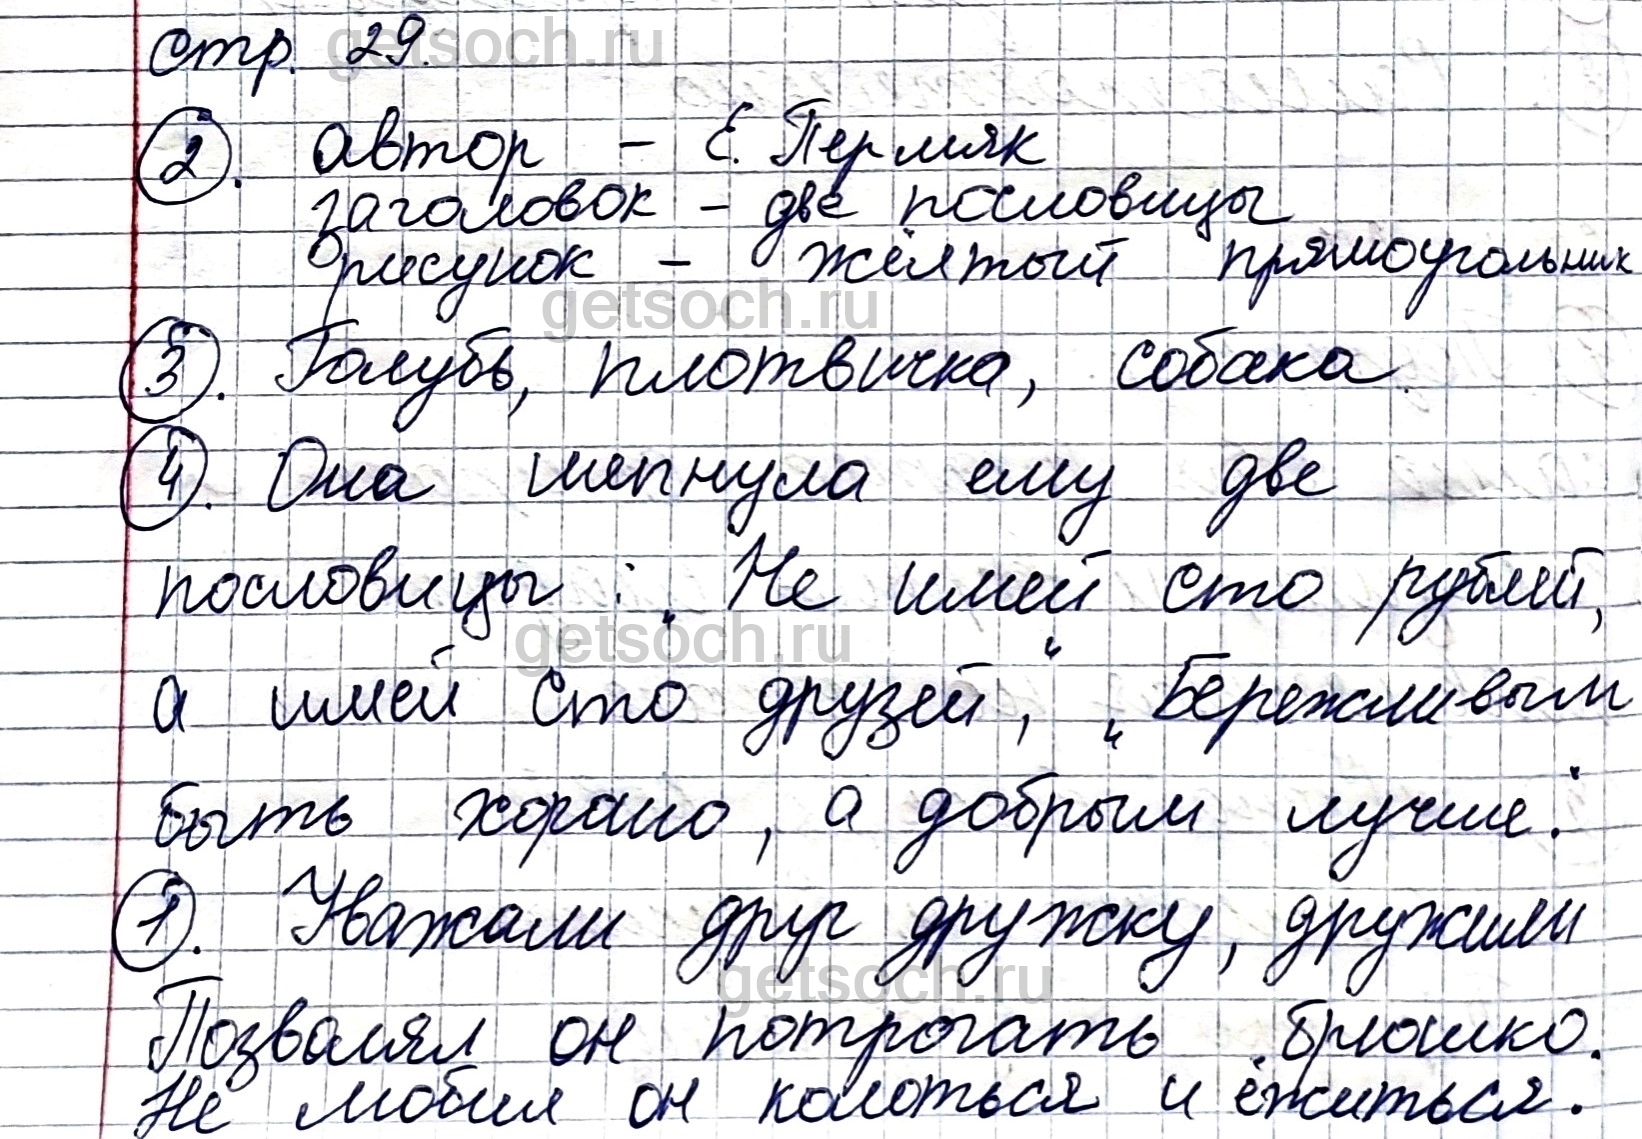 стр. 29.
getsoch.ru
2. автор – Е. Пермяк
заголовок – две пословицы
рисунок – жёлтый прямоугольник
getsoch.ru
3. Голубь, плотвичка, собака.
4. Она шепнула ему две
пословицы: „Не имей сто рублей,
getsoch.ru
а имей сто друзей,“ „Бережливым
быть хорошо, а добрым лучше.“
1. Уважали друг дружку, дружили
getsoch.ru
Позволял он потрогать брюшко.
Не любил он колоться и ёжиться.